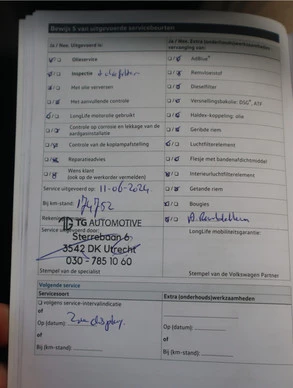 Bewijs 5 van uitgevoerde servicebeurten
Ja / Nee: Uitgevoerd in:
Ja / Nee: Extra (onderhouds)werkzaamheden
vervanging van:
Olieservice
AdBlue®
Inspectie
Remvloeistof
Met olie-verversen
Dieselfilter
Met aanvullende controle
Versnellingsbakolie: DSG®, ATF
LongLife motorolie gebruikt
Haldex-koppeling: olie
Controle op corrosie en lekkage van de
aardgasinstallatie
Geribde riem
Controle van de koplampafstelling
Luchtfilterelement
Reparatieadvies
Flesje met bandenafdichtmiddel
Wens klant
(ook op de werkorder vermelden)
Interieurluchtfilterelement
Service uitgevoerd op: 11-06-2024
Getande riem
Bij km-stand: 174752
Bougies
TG AUTOMOTIVE
Service uitgevoerd door:
LongLife mobiliteitsgarantie:
Sterrebaan 6
3542 DK Utrecht
030 - 785 10 60
Stempel van de specialist
Stempel van de Volkswagen Partner
Volgende service
Servicesoort
Extra (onderhouds)werkzaamheden
volgens service-intervalindicatie
of
Op (datum): Zie display
Op (datum):
of
of
Bij (km-stand):
Bij (km-stand):